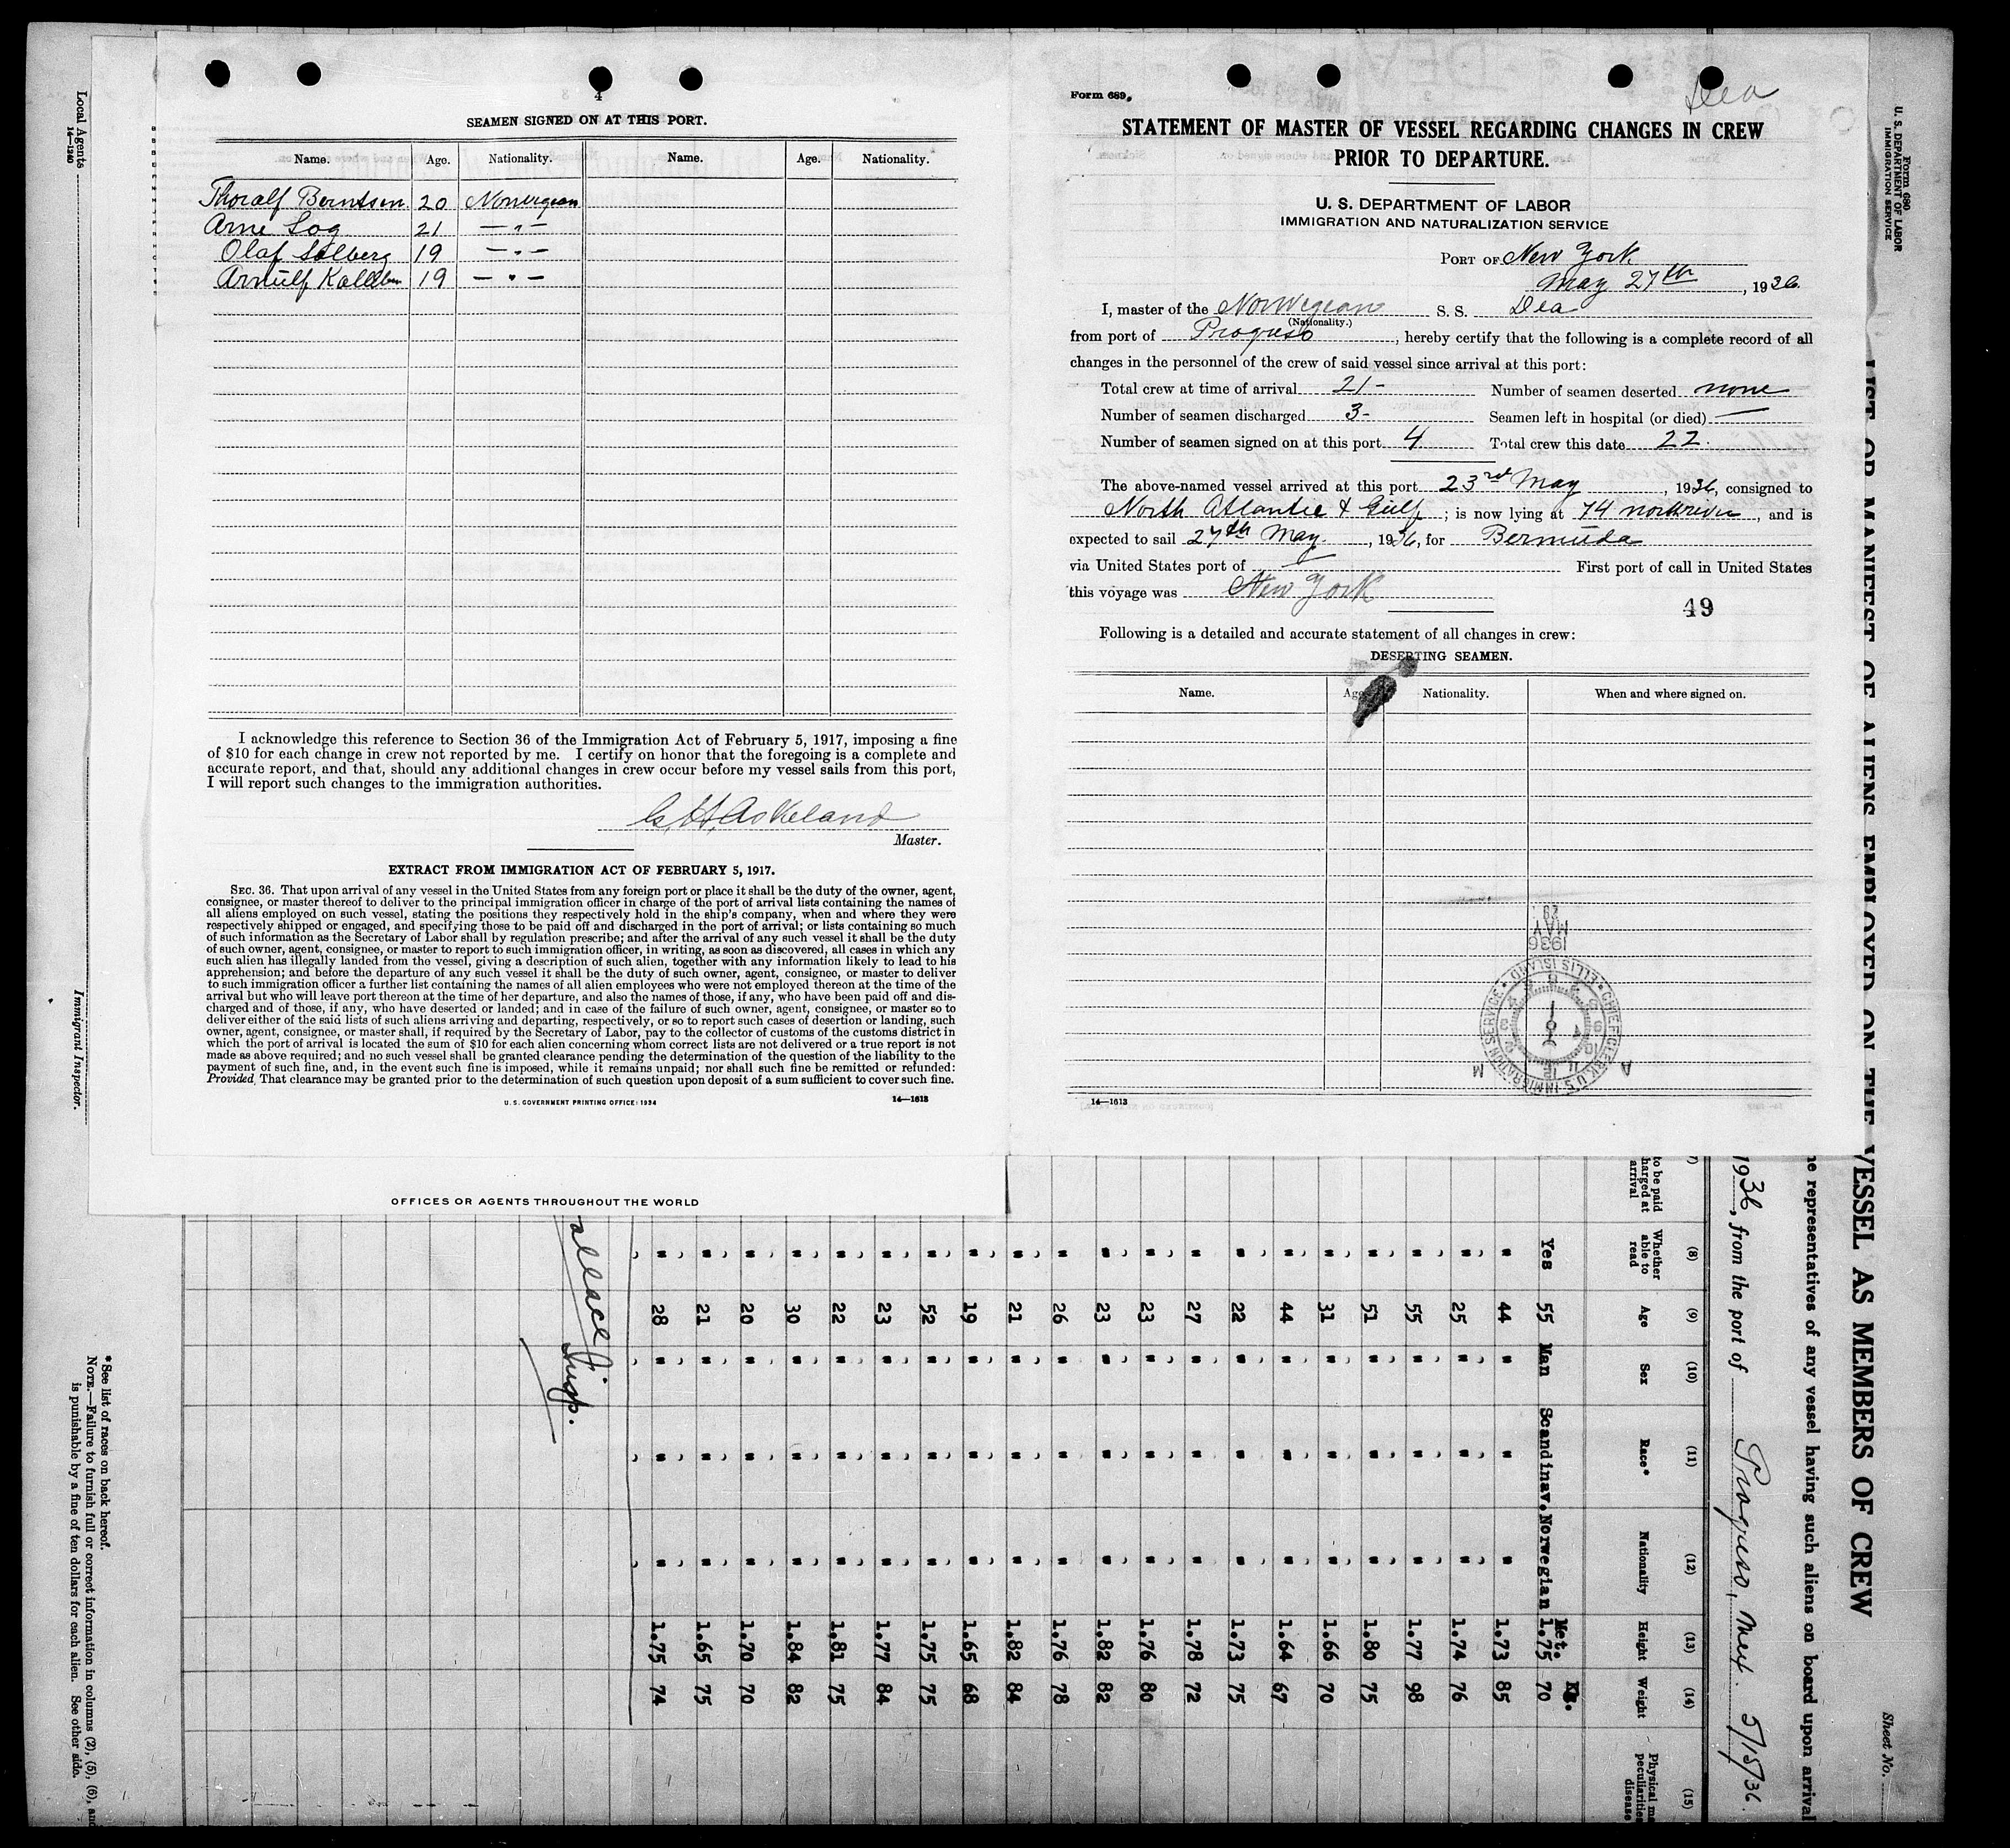 4
SEAMEN SIGNED ON AT THIS PORT.
Name. Age. Nationality. Name. Age. Nationality.
Thoralf Berntsen. 20 Norwegian
Arne Log 21 — " —
Olaf Solberg 19 — " —
Arnulf 19 — " —
I acknowledge this reference to Section 36 of the Immigration Act of February 5, 1917, imposing a fine
of $10 for each change in crew not reported by me. I certify on honor that the foregoing is a complete and
accurate report, and that, should any additional changes in crew occur before my vessel sails from this port,
I will report such changes to the immigration authorities.
Master.
EXTRACT FROM IMMIGRATION ACT OF FEBRUARY 5, 1917.
SEC. 36. That upon arrival of any vessel in the United States from any foreign port or place it shall be the duty of the owner, agent,
consignee, or master thereof to deliver to the principal immigration officer in charge of the port of arrival lists containing the names of
all aliens employed on such vessel, stating the positions they respectively hold in the ship's company, when and where they were
respectively shipped or engaged, and specifying those to be paid off and discharged in the port of arrival; or lists containing so much
of such information as the Secretary of Labor shall by regulation prescribe; and after the arrival of any such vessel it shall be the duty
of such owner, agent, consignee, or master to report to such immigration officer, in writing, as soon as discovered, all cases in which any
such alien has illegally landed from the vessel, giving a description of such alien, together with any information likely to lead to his
apprehension; and before the departure of any such vessel it shall be the duty of such owner, agent, consignee, or master to deliver
to such immigration officer a further list containing the names of all alien employees who were not employed thereon at the time of the
arrival but who will leave port thereon at the time of her departure, and also the names of those, if any, who have been paid off and dis-
charged and of those, if any, who have deserted or landed; and in case of the failure of such owner, agent, consignee, or master so to
deliver either of the said lists of such aliens arriving and departing, respectively, or so to report such cases of desertion or landing, such
owner, agent, consignee, or master shall, if required by the Secretary of Labor, pay to the collector of customs of the customs district in
which the port of arrival is located the sum of $10 for each alien concerning whom correct lists are not delivered or a true report is not
made as above required; and no such vessel shall be granted clearance pending the determination of the question of the liability to the
payment of such fine, and, in the event such fine is imposed, while it remains unpaid; nor shall such fine be remitted or refunded:
Provided, That clearance may be granted prior to the determination of such question upon deposit of a sum sufficient to cover such fine.
U. S. GOVERNMENT PRINTING OFFICE: 1934 14—1613
OFFICES OR AGENTS THROUGHOUT THE WORLD
Form 689.
Dea
STATEMENT OF MASTER OF VESSEL REGARDING CHANGES IN CREW
PRIOR TO DEPARTURE.
U. S. DEPARTMENT OF LABOR
IMMIGRATION AND NATURALIZATION SERVICE
PORT OF New York
May 27th, 1936
I, master of the Norwegian S. S. Dea
(Nationality.)
from port of Progreso, hereby certify that the following is a complete record of all
changes in the personnel of the crew of said vessel since arrival at this port:
Total crew at time of arrival 21- Number of seamen deserted none
Number of seamen discharged 3- Seamen left in hospital (or died) —
Number of seamen signed on at this port 4 Total crew this date 22.
The above-named vessel arrived at this port 23rd May, 1936, consigned to
North Atlantic & Gulf; is now lying at 74 northriver, and is
expected to sail 27th May., 1936, for Bermuda
via United States port of First port of call in United States
this voyage was New York
49
Following is a detailed and accurate statement of all changes in crew:
DESERTING SEAMEN.
Name. Age. Nationality. When and where signed on.
1936
MAY 29
CHIEF CLERK U.S. IMMIGRATION SERVICE • ELLIS ISLAND •
A M
14—1613
Form 680
U. S. DEPARTMENT OF LABOR
IMMIGRATION SERVICE
LIST OR MANIFEST OF ALIENS EMPLOYED ON THE VESSEL AS MEMBERS OF CREW
Sheet No.
he representatives of any vessel having such aliens on board upon arrival
1936, from the port of Progreso, Mex. 5/15/36.
(8) (9) (10) (11) (12) (13) (14) (15)
to be paid
harged at
arrival
Whether able to read
Age
Sex
Race*
Nationality
Height
Weight
Met. Kg.
Yes 55 Man Scandinav. Norwegian 1.75 70
" 44 " " " 1.73 85
" 25 " " " 1.74 76
" 55 " " " 1.77 98
" 51 " " " 1.80 75
" 31 " " " 1.66 70
" 44 " " " 1.64 67
" 22 " " " 1.73 75
" 27 " " " 1.78 72
" 23 " " " 1.76 80
" 23 " " " 1.82 82
" 26 " " " 1.76 78
" 21 " " " 1.82 84
" 19 " " " 1.65 68
" 52 " " " 1.75 75
" 23 " " " 1.77 84
" 22 " " " 1.81 75
" 30 " " " 1.84 82
" 20 " " " 1.70 70
" 21 " " " 1.65 75
" 28 " " " 1.75 74
Insp.
Local Agents
14—1240
Immigrant Inspector.
*See list of races on back hereof.
NOTE.—Failure to furnish full or correct information in columns (2), (5), (6), and
is punishable by a fine of ten dollars for each alien. See other side.